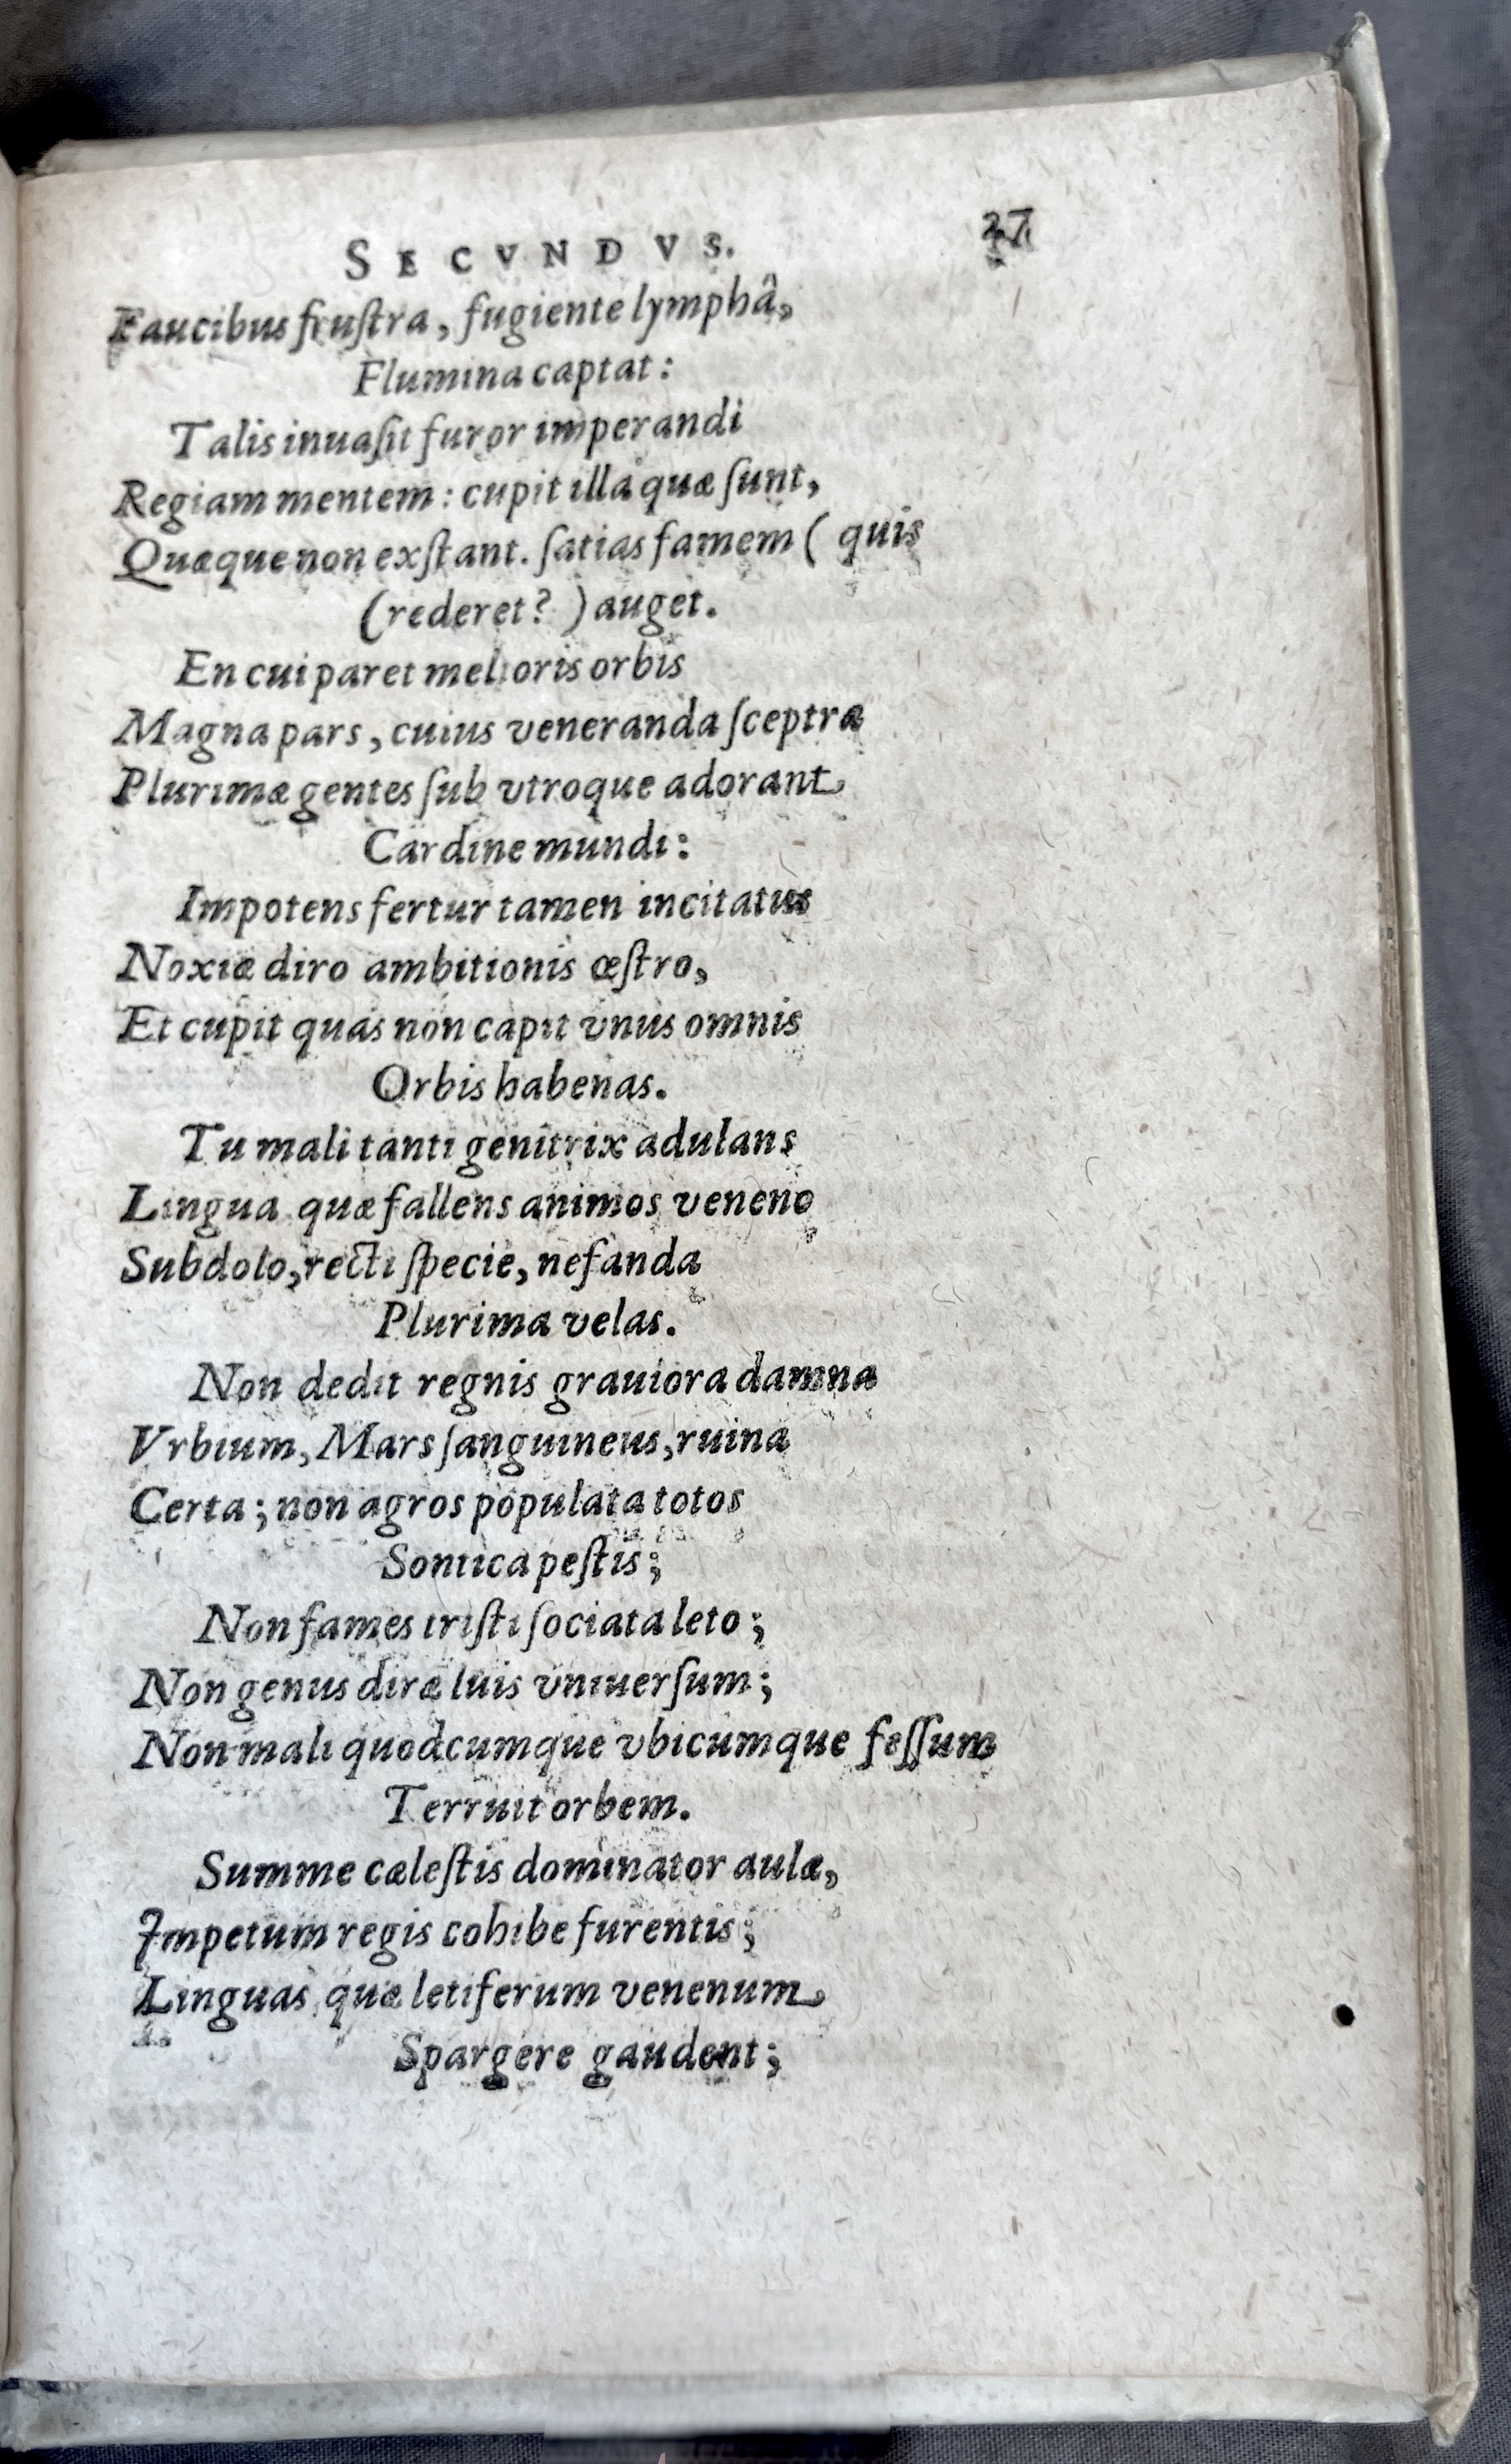 SECVNDVS. 27
Faucibus fruſtra, fugiente lymphâ,
Flumina captat:
Talis inuaſit furor imperandi
Regiam mentem: cupit illa quæ ſunt,
Quæque non exſtant. ſatias famem ( quis
(rederet? ) auget.
En cui paret melioris orbis
Magna pars, cuius veneranda ſceptra
Plurimæ gentes ſub vtroque adorant
Cardine mundi:
Impotens fertur tamen incitatus
Noxiæ diro ambitionis œſtro,
Et cupit quas non capit vnus omnis
Orbis habenas.
Tu mali tanti genitrix adulans
Lingua quæ fallens animos veneno
Subdolo, recti ſpecie, nefanda
Plurima velas.
Non dedit regnis grauiora damna
Vrbium, Mars ſanguineus, ruina
Certa; non agros populata totos
Sontica peſtis;
Non fames triſti ſociata leto;
Non genus diræ luis vniuerſum;
Non mali quodcumque vbicumque feſſum
Terruit orbem.
Summe cæleſtis dominator aulæ,
Impetum regis cohibe furentis;
Linguas quæ letiferum venenum
Spargere gaudent;